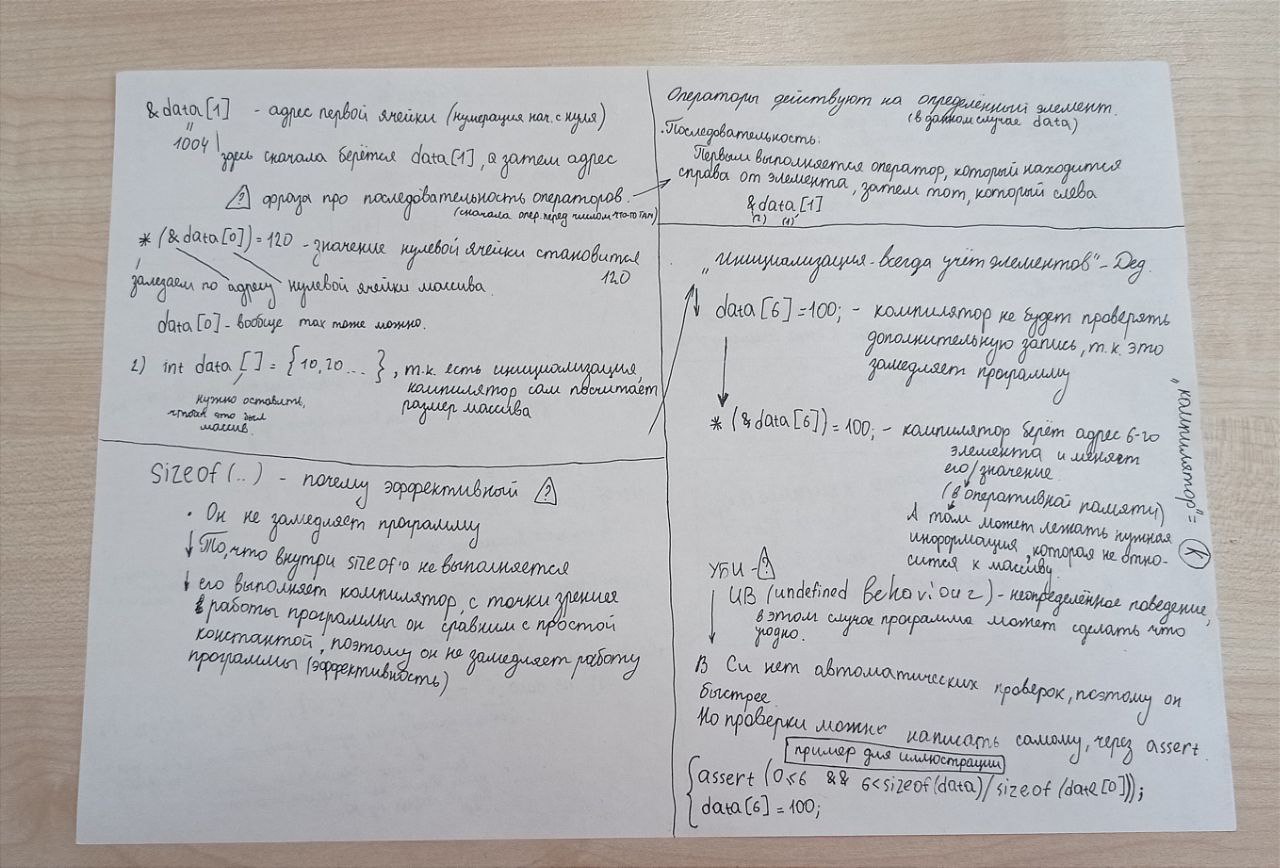 &data[1] - адрес первой ячейки (нумерация нач. с нуля)
"
1004
здесь сначала берётся data[1], а затем адрес
? фраза про последовательность операторов.
(сначала опер. перед числом что-то там)
*(&data[0])=120 - значение нулевой ячейки становится
120
залезаем по адресу нулевой ячейки массива.
data[0] - вообще так тоже можно.
2) int data [] = {10,20...}, т.к. есть инициализация
компилятор сам посчитает
размер массива
нужно оставить,
чтобы это был
массив.
Sizeof(..) - почему эффективный ?
• Он не замедляет программу
То, что внутри sizeof'а не выполняется
его выполняет компилятор, с точки зрения
работы программы он сравним с простой
константой, поэтому он не замедляет работу
программы (эффективность)
Операторы действуют на определённый элемент.
(в данном случае data)
.Последовательность:
Первым выполняется оператор, который находится
справа от элемента, затем тот, который слева
&data[1]
(2) (1)
"Инициализация - всегда учёт элементов" - Дед.
data[6]=100; - компилятор не будет проверять
дополнительную запись, т.к. это
замедляет программу
*(&data[6])=100; - компилятор берёт адрес 6-го
элемента и меняет
его/значение
(в оперативной памяти)
А там может лежать нужная
информация, которая не отно-
сится к массиву.
"компилятор" = K
УБИ - ?
UB (undefined behaviour) - неопределённое поведение,
в этом случае программа может сделать что
угодно.
В Си нет автоматических проверок, поэтому он
быстрее.
Но проверки можно написать самому, через assert.
пример для иллюстрации
assert (0≤6 && 6<sizeof(data)/sizeof(data[0]));
data[6]=100;